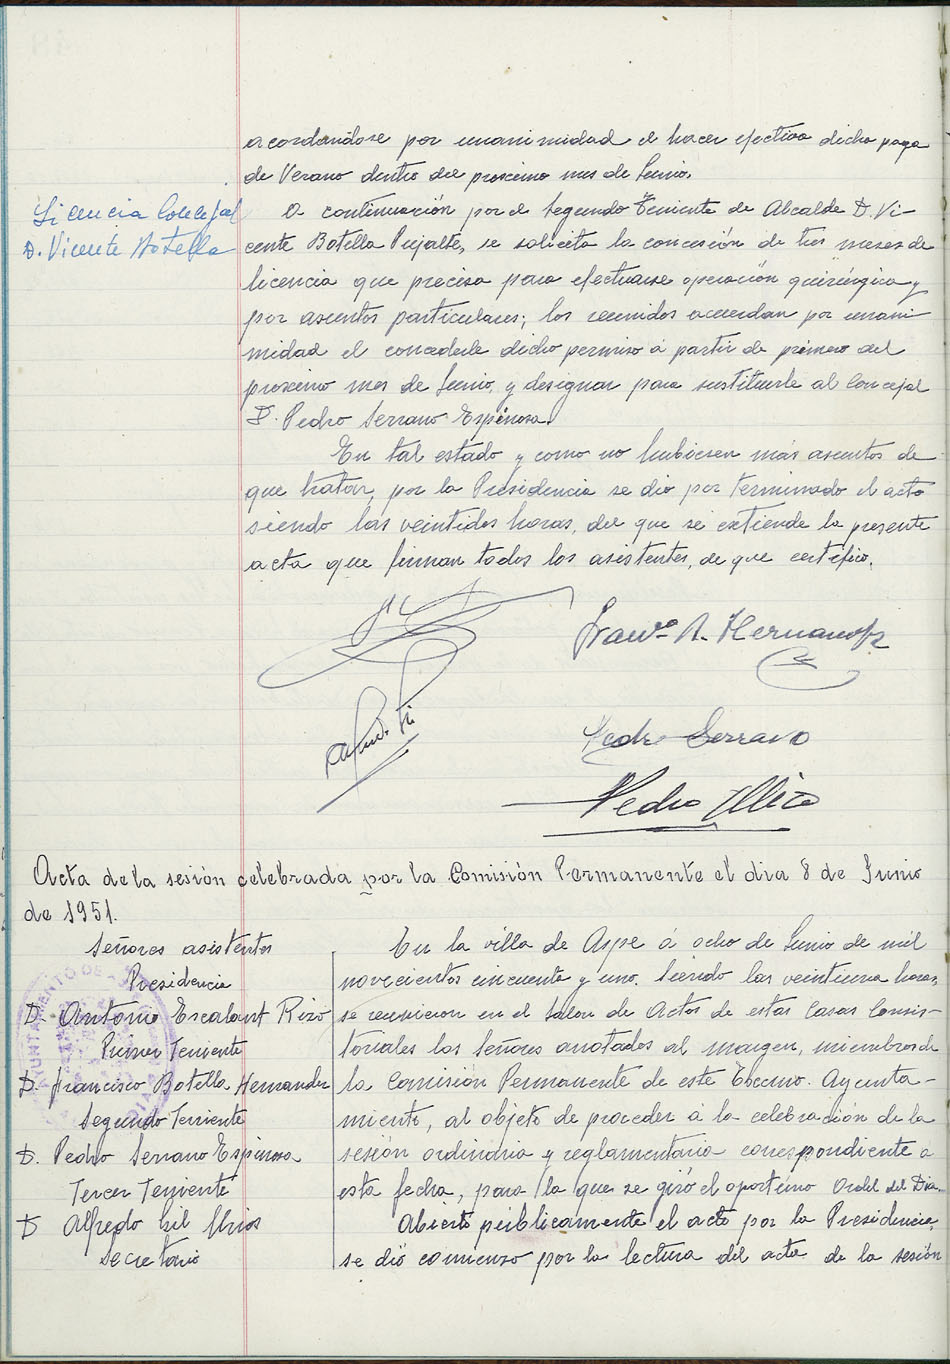 acordandose por unanimidad el hacer efectiva dicha paga
de Verano dentro del proximo mes de Junio.
Licencia Concejal
D. Vicente Botella
A continuación por el Segundo Teniente de Alcalde D. Vi-
cente Botella Pujalte, se solicita la concesión de tres meses de
licencia que precisa para efectuarse operación quirúrgica y
por asuntos particulares; los reunidos acuerdan por unani
midad el concederle dicho permiso á partir de primero del
proximo mes de Junio, y designar para sustituirle al Concejal
D. Pedro Serrano Espinosa.
En tal estado y como no hubiesen más asuntos de
que tratar, por la Presidencia se dio por terminado el acto
siendo las veintidos horas, del que se extiende la presente
acta que firman todos los asistentes, de que certifico.
Pedro Serrano
Acta de la sesión celebrada por la Comisión Permanente el dia 8 de Junio
de 1951.
Señores asistentes
Presidencia
D. Antonio Escalant Rizo
Primer Teniente
D. Francisco Botella Hernander
Segundo Teniente
D. Pedro Serrano Espinosa
Tercer Teniente
D Alfredo Gil
Secretario
En la villa de Aspe á ocho de Junio de mil
novecientos cincuenta y uno. Siendo las veintiuna horas,
se reunieron en el Salon de Actos de estas Casas Consis-
toriales los Señores anotados al margen, miembros de
la Comisión Permanente de este Excmo. Ayunta-
miento, al objeto de proceder á la celebración de la
sesión ordinaria y reglamentaria correspondiente a
esta fecha, para la que se giró el oportuno Orden del Dia.
Abierto públicamente el acto por la Presidencia,
se dió comienzo por la lectura del acta de la sesión